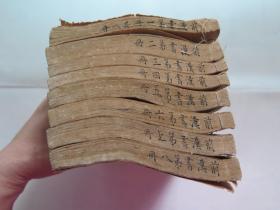 前漢書第一冊
前漢書第二冊
前漢書第三冊
前漢書第四冊
前漢書第五冊
前漢書第六冊
前漢書第七冊
前漢書第八冊